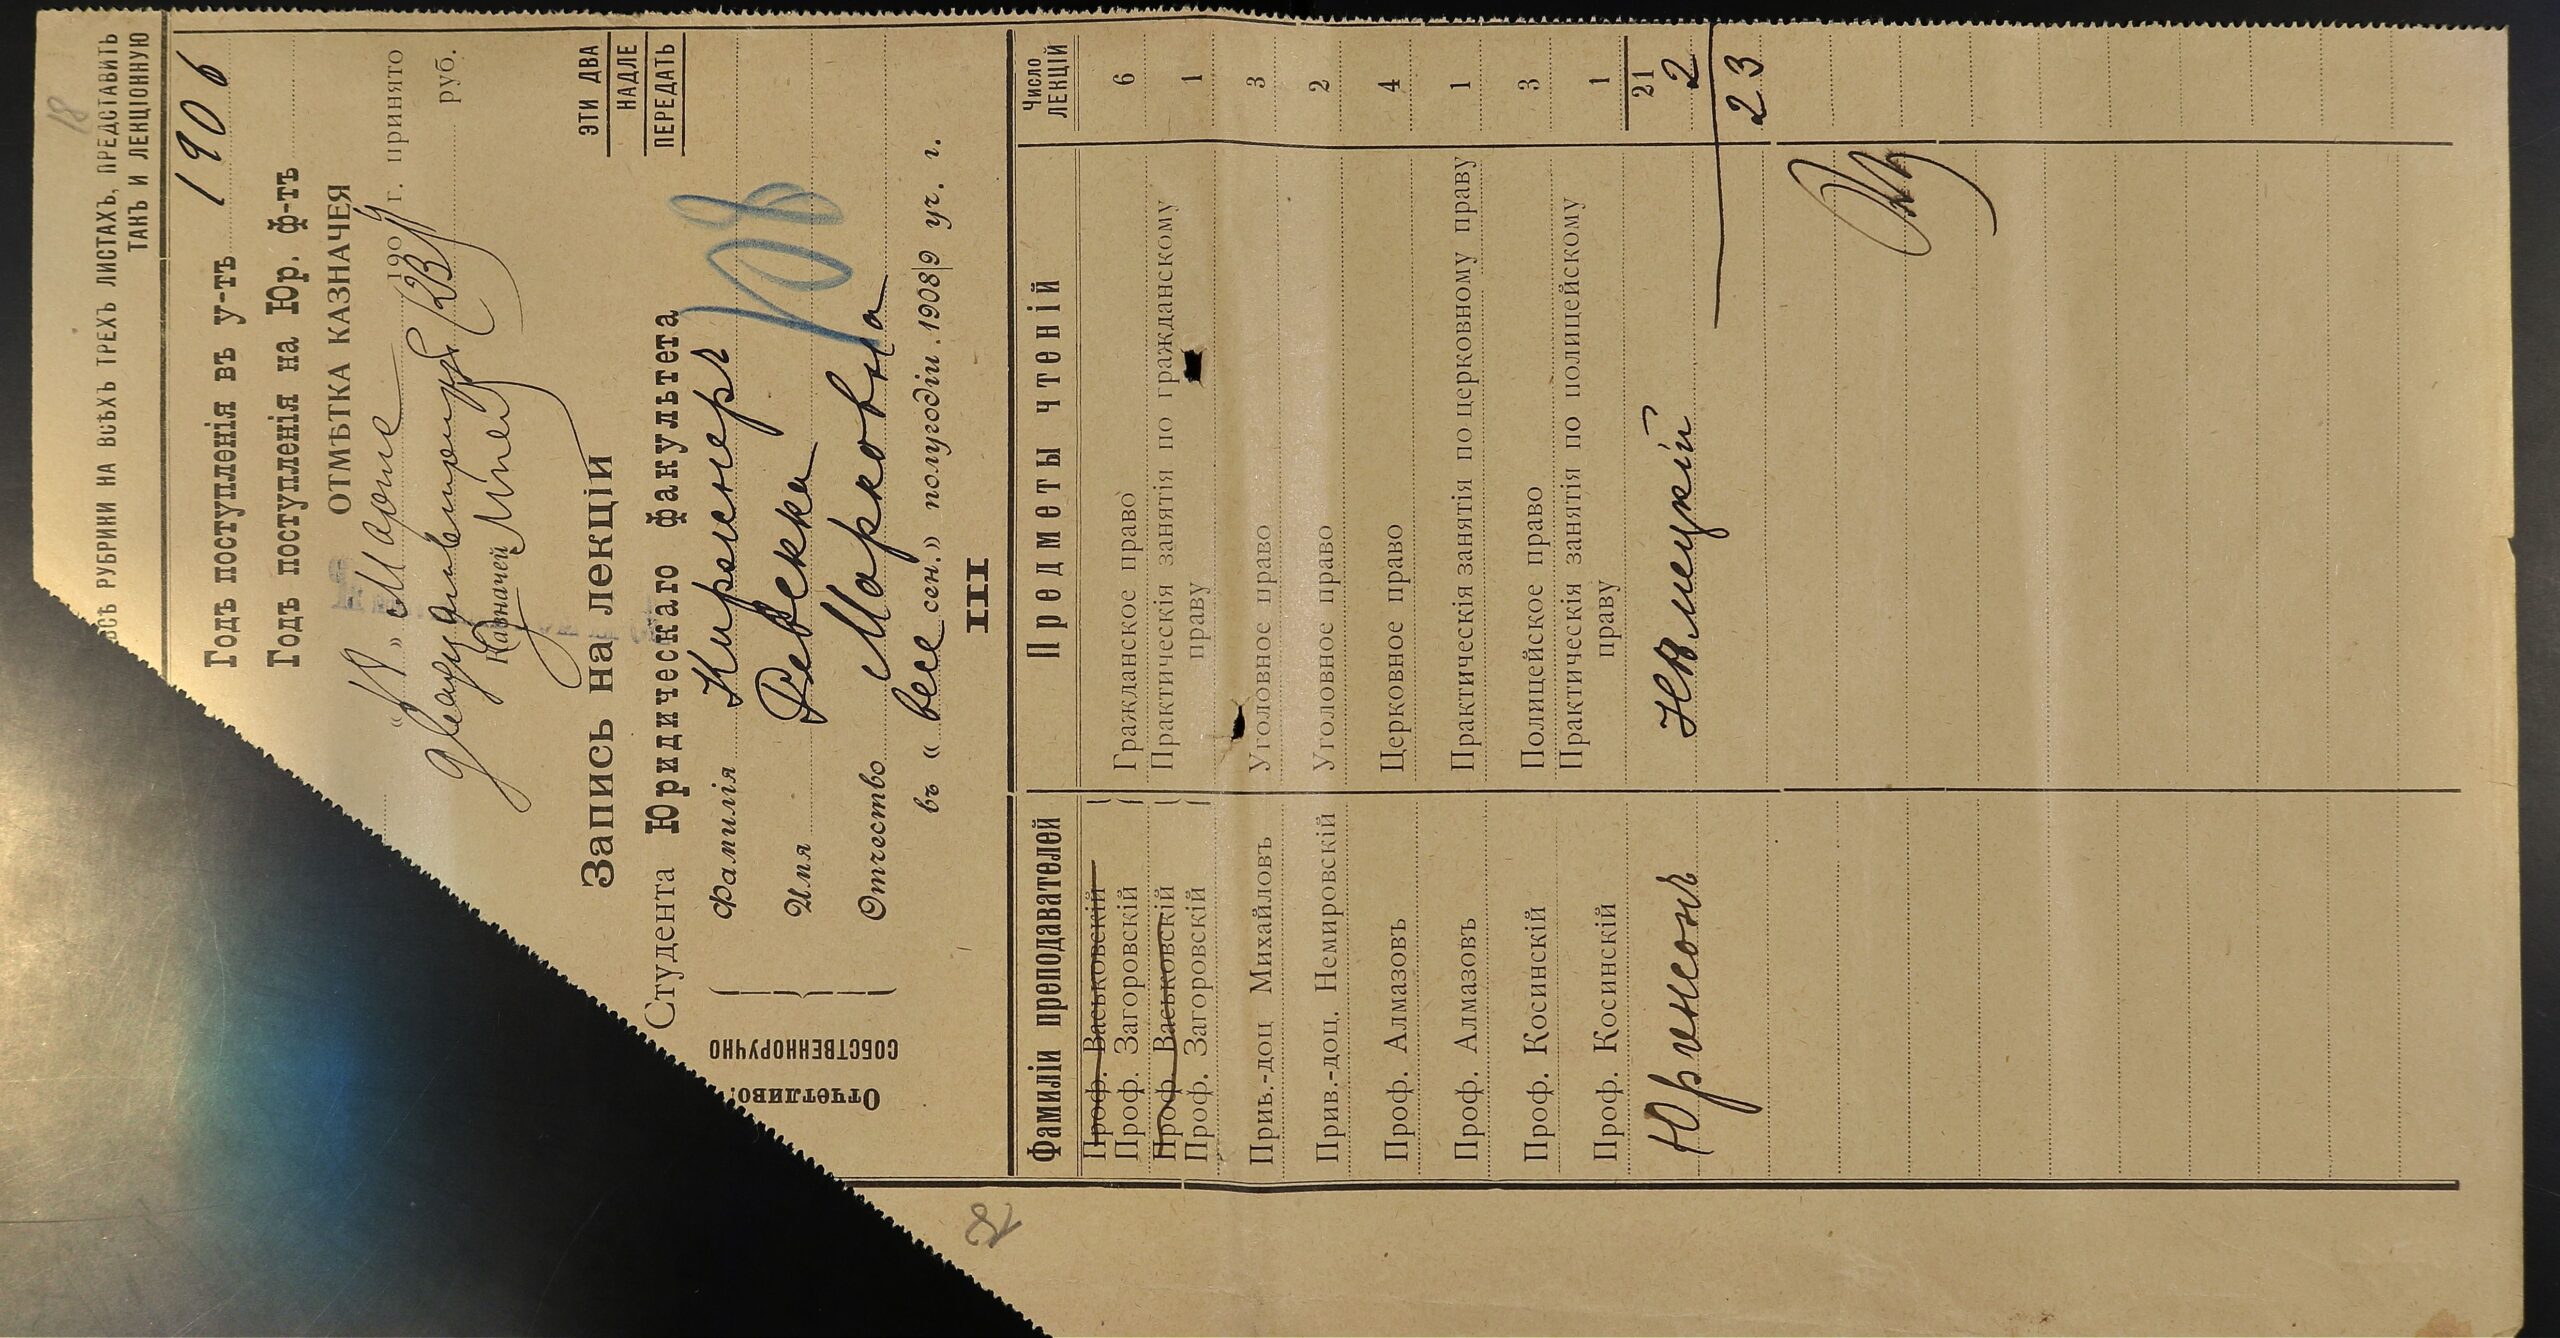 18
ВСѢ РУБРИКИ НА ВСѢХЪ ТРЕХЪ ЛИСТАХЪ, ПРЕДСТАВИТЬ
ТАКЪ И ЛЕКЦІОННУЮ
Годъ поступленія въ у-тъ 1906
Годъ поступленія на Юр. ф-тъ
ОТМѢТКА КАЗНАЧЕЯ
" " Марта 190 г. принято
руб.
Казначей
ЭТИ ДВА
НАДЛЕ
ПЕРЕДАТЬ
Запись на лекціи
Студента Юридическаго факультета
Отчетливо!
СОБСТВЕННОРУЧНО
Фамилія Киршнеръ
Имя Ревекка
Отчество Марковна
въ « весе сен.» полугодіи 1908/9 уч. г.
III
Фамиліи преподавателей Предметы чтеній Число ЛЕКЦІЙ
Проф. Васьковскій
Проф. Загоровскій Гражданское право 6
Проф. Васьковскій Практическія занятія по гражданскому 1
Проф. Загоровскій праву
Прив.-доц Михайловъ Уголовное право 3
Прив.-доц. Немировскій Уголовное право 2
Проф. Алмазовъ Церковное право 4
Проф. Алмазовъ Практическія занятія по церковному праву 1
Проф. Косинскій Полицейское право 3
Проф. Косинскій Практическія занятія по полицейскому 1
праву
21
Юргенсонъ Нѣмецкій 2
23
18